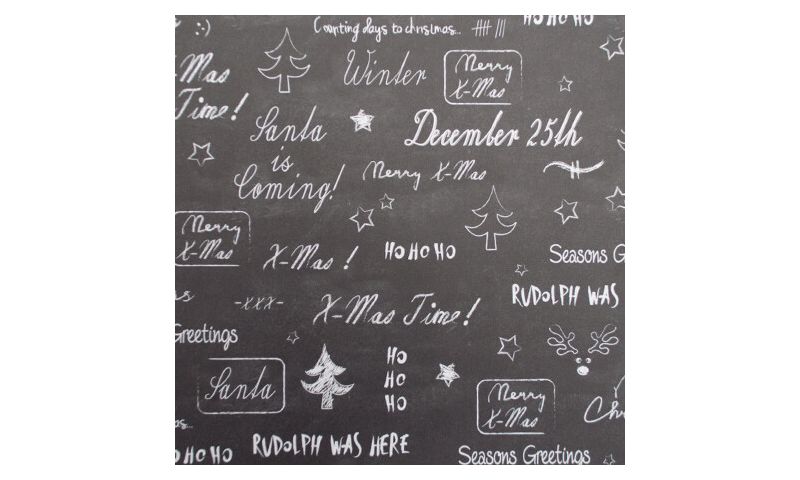 HO HO HO
Counting days to christmas...
Mas
Time!
Winter
Merry
X-Mas
Santa
is
Coming!
December 25th
Merry X-Mas
Merry
X-Mas
X-Mas !
HO HO HO
Seasons G
-xxx-
X-Mas Time!
RUDOLPH WAS
Greetings
Santa
HO
HO
HO
Merry
X-Mas
Ch
HO HO HO
RUDOLPH WAS HERE
Seasons Greetings